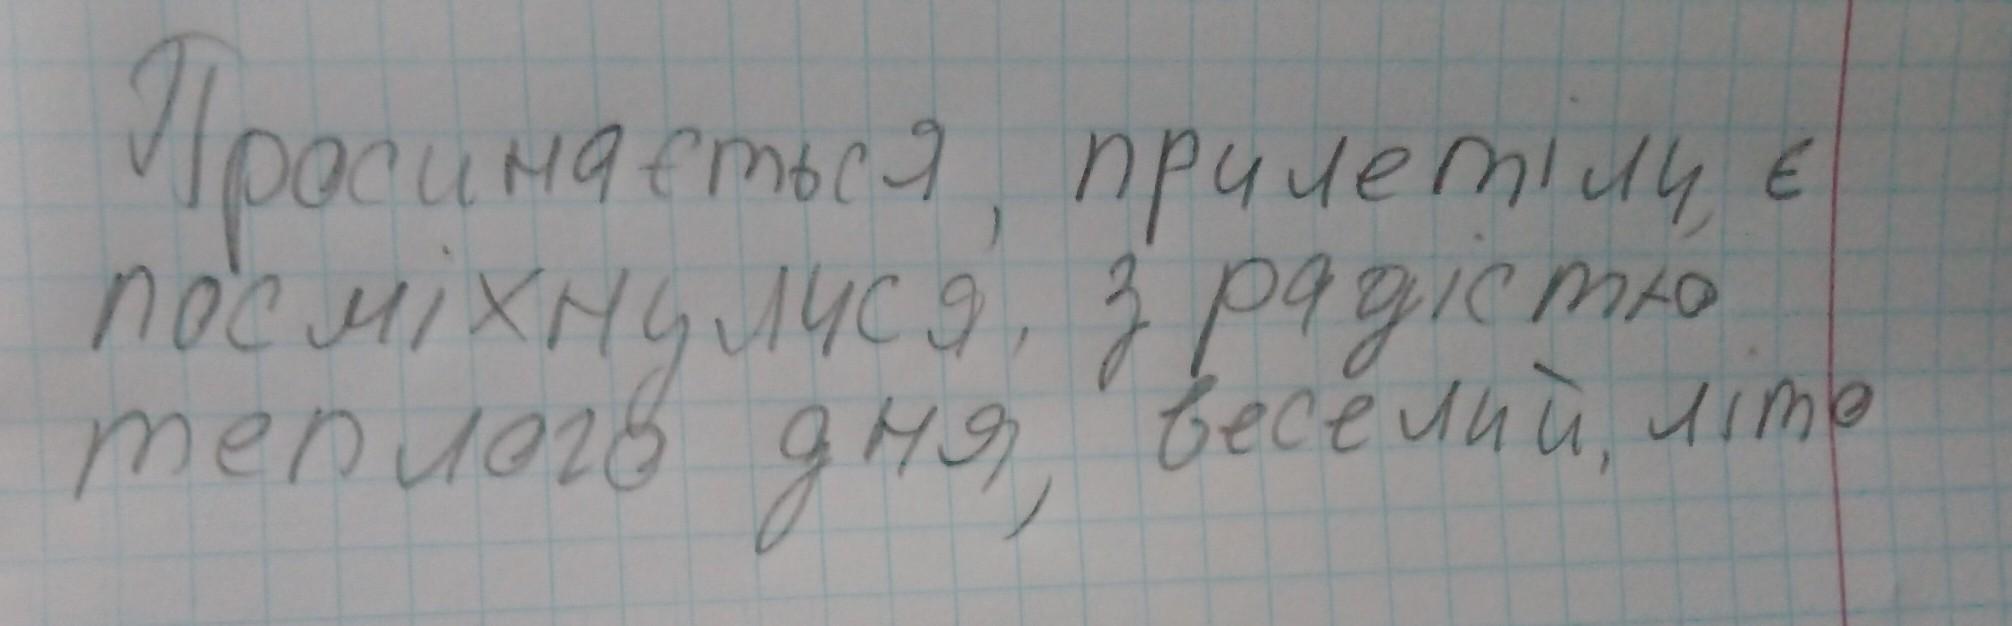 Просинається, прилетіли, є
посміхнулися, з радістю
теплого дня, веселий, літо